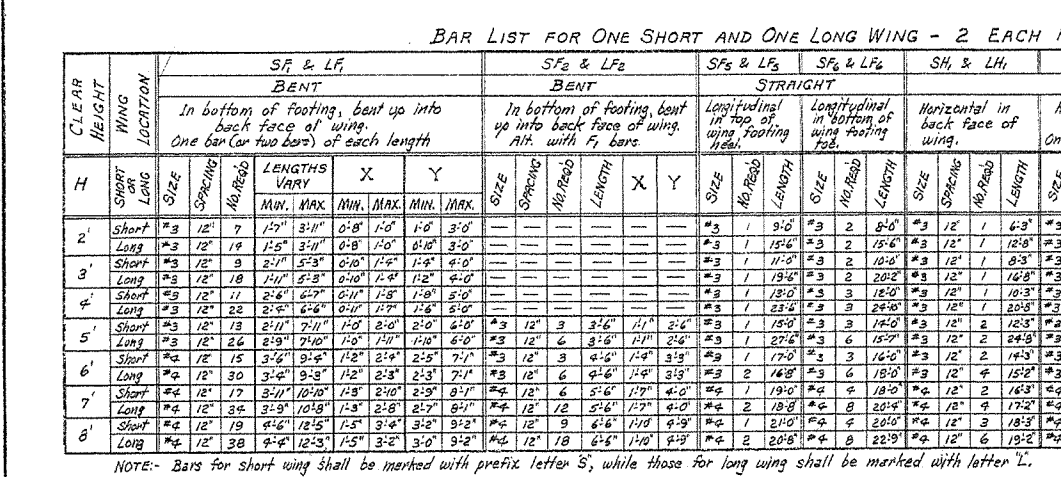 BAR LIST FOR ONE SHORT AND ONE LONG WING - 2 EACH
CLEAR HEIGHT WING LOCATION SF1 & LF1 SF2 & LF2 SF5 & LF5 SF6 & LF6 SH1 & LH1
BENT BENT STRAIGHT
In bottom of footing, bent up into back face of wing. One bar (or two bars) of each length
In bottom of footing, bent up into back face of wing. Alt. with F1 bars.
Longitudinal in top of wing footing heel.
Longitudinal in bottom of wing footing toe.
Horizontal in back face of wing.
H SHORT OR LONG SIZE SPACING NO. REQ'D LENGTHS VARY X Y SIZE SPACING NO. REQ'D LENGTH X Y SIZE NO. REQ'D LENGTH SIZE NO. REQ'D LENGTH SIZE SPACING NO. REQ'D LENGTH
MIN. MAX. MIN. MAX. MIN. MAX.
2' Short #3 12" 7 1'-7" 3'-11" 0'-8" 1'-0" 1'-0" 3'-0" — — — — — — #3 1 9'-0" #3 2 8'-0" #3 12" 1 6'-3" #3
Long #3 12" 14 1'-5" 3'-11" 0'-8" 1'-0" 0'-10" 3'-0" — — — — — — #3 1 15'-6" #3 2 15'-6" #3 12" 1 12'-8" #3
3' Short #3 12" 9 2'-1" 5'-3" 0'-10" 1'-4" 1'-4" 4'-0" — — — — — — #3 1 11'-0" #3 2 10'-0" #3 12" 1 8'-3" #3
Long #3 12" 18 1'-11" 5'-3" 0'-10" 1'-4" 1'-2" 4'-0" — — — — — — #3 1 19'-6" #3 2 20'-2" #3 12" 1 16'-8" #3
4' Short #3 12" 11 2'-6" 6'-7" 0'-11" 1'-8" 1'-8" 5'-0" — — — — — — #3 1 13'-0" #3 3 12'-0" #3 12" 1 10'-3" #3
Long #3 12" 22 2'-4" 6'-6" 0'-11" 1'-7" 1'-6" 5'-0" — — — — — — #3 1 23'-6" #3 3 24'-10" #3 12" 1 20'-8" #3
5' Short #3 12" 13 2'-11" 7'-11" 1'-0" 2'-0" 2'-0" 6'-0" #3 12" 3 3'-6" 1'-1" 2'-6" #3 1 15'-0" #3 3 14'-0" #3 12" 2 12'-3" #3
Long #3 12" 26 2'-9" 7'-10" 1'-0" 1'-11" 1'-10" 6'-0" #3 12" 6 3'-6" 1'-1" 2'-6" #3 1 27'-6" #3 6 15'-7" #3 12" 2 24'-8" #3
6' Short #4 12" 15 3'-6" 9'-4" 1'-2" 2'-4" 2'-5" 7'-1" #3 12" 3 4'-6" 1'-4" 3'-3" #3 1 17'-0" #3 3 16'-0" #3 12" 2 14'-3" #3
Long #4 12" 30 3'-4" 9'-3" 1'-2" 2'-3" 2'-3" 7'-1" #3 12" 6 4'-6" 1'-4" 3'-3" #3 2 16'-8" #3 6 18'-0" #3 12" 4 15'-2" #3
7' Short #4 12" 17 3'-11" 10'-10" 1'-3" 2'-10" 2'-9" 8'-1" #4 12" 6 5'-6" 1'-7" 4'-0" #4 1 19'-0" #4 4 18'-0" #4 12" 2 16'-3" #4
Long #4 12" 34 3'-9" 10'-8" 1'-3" 2'-8" 2'-7" 8'-1" #4 12" 12 5'-6" 1'-7" 4'-0" #4 2 18'-8" #4 8 20'-4" #4 12" 4 17'-2" #4
8' Short #4 12" 19 4'-6" 12'-5" 1'-5" 3'-4" 3'-2" 9'-2" #4 12" 9 6'-6" 1'-10" 4'-9" #4 1 21'-0" #4 4 20'-0" #4 12" 3 18'-3" #4
Long #4 12" 38 4'-4" 12'-3" 1'-5" 3'-2" 3'-0" 9'-2" #4 12" 18 6'-6" 1'-10" 4'-9" #4 2 20'-8" #4 8 22'-9" #4 12" 6 19'-2" #4
NOTE:- Bars for short wing shall be marked with prefix letter "S", while those for long wing shall be marked with letter "L".